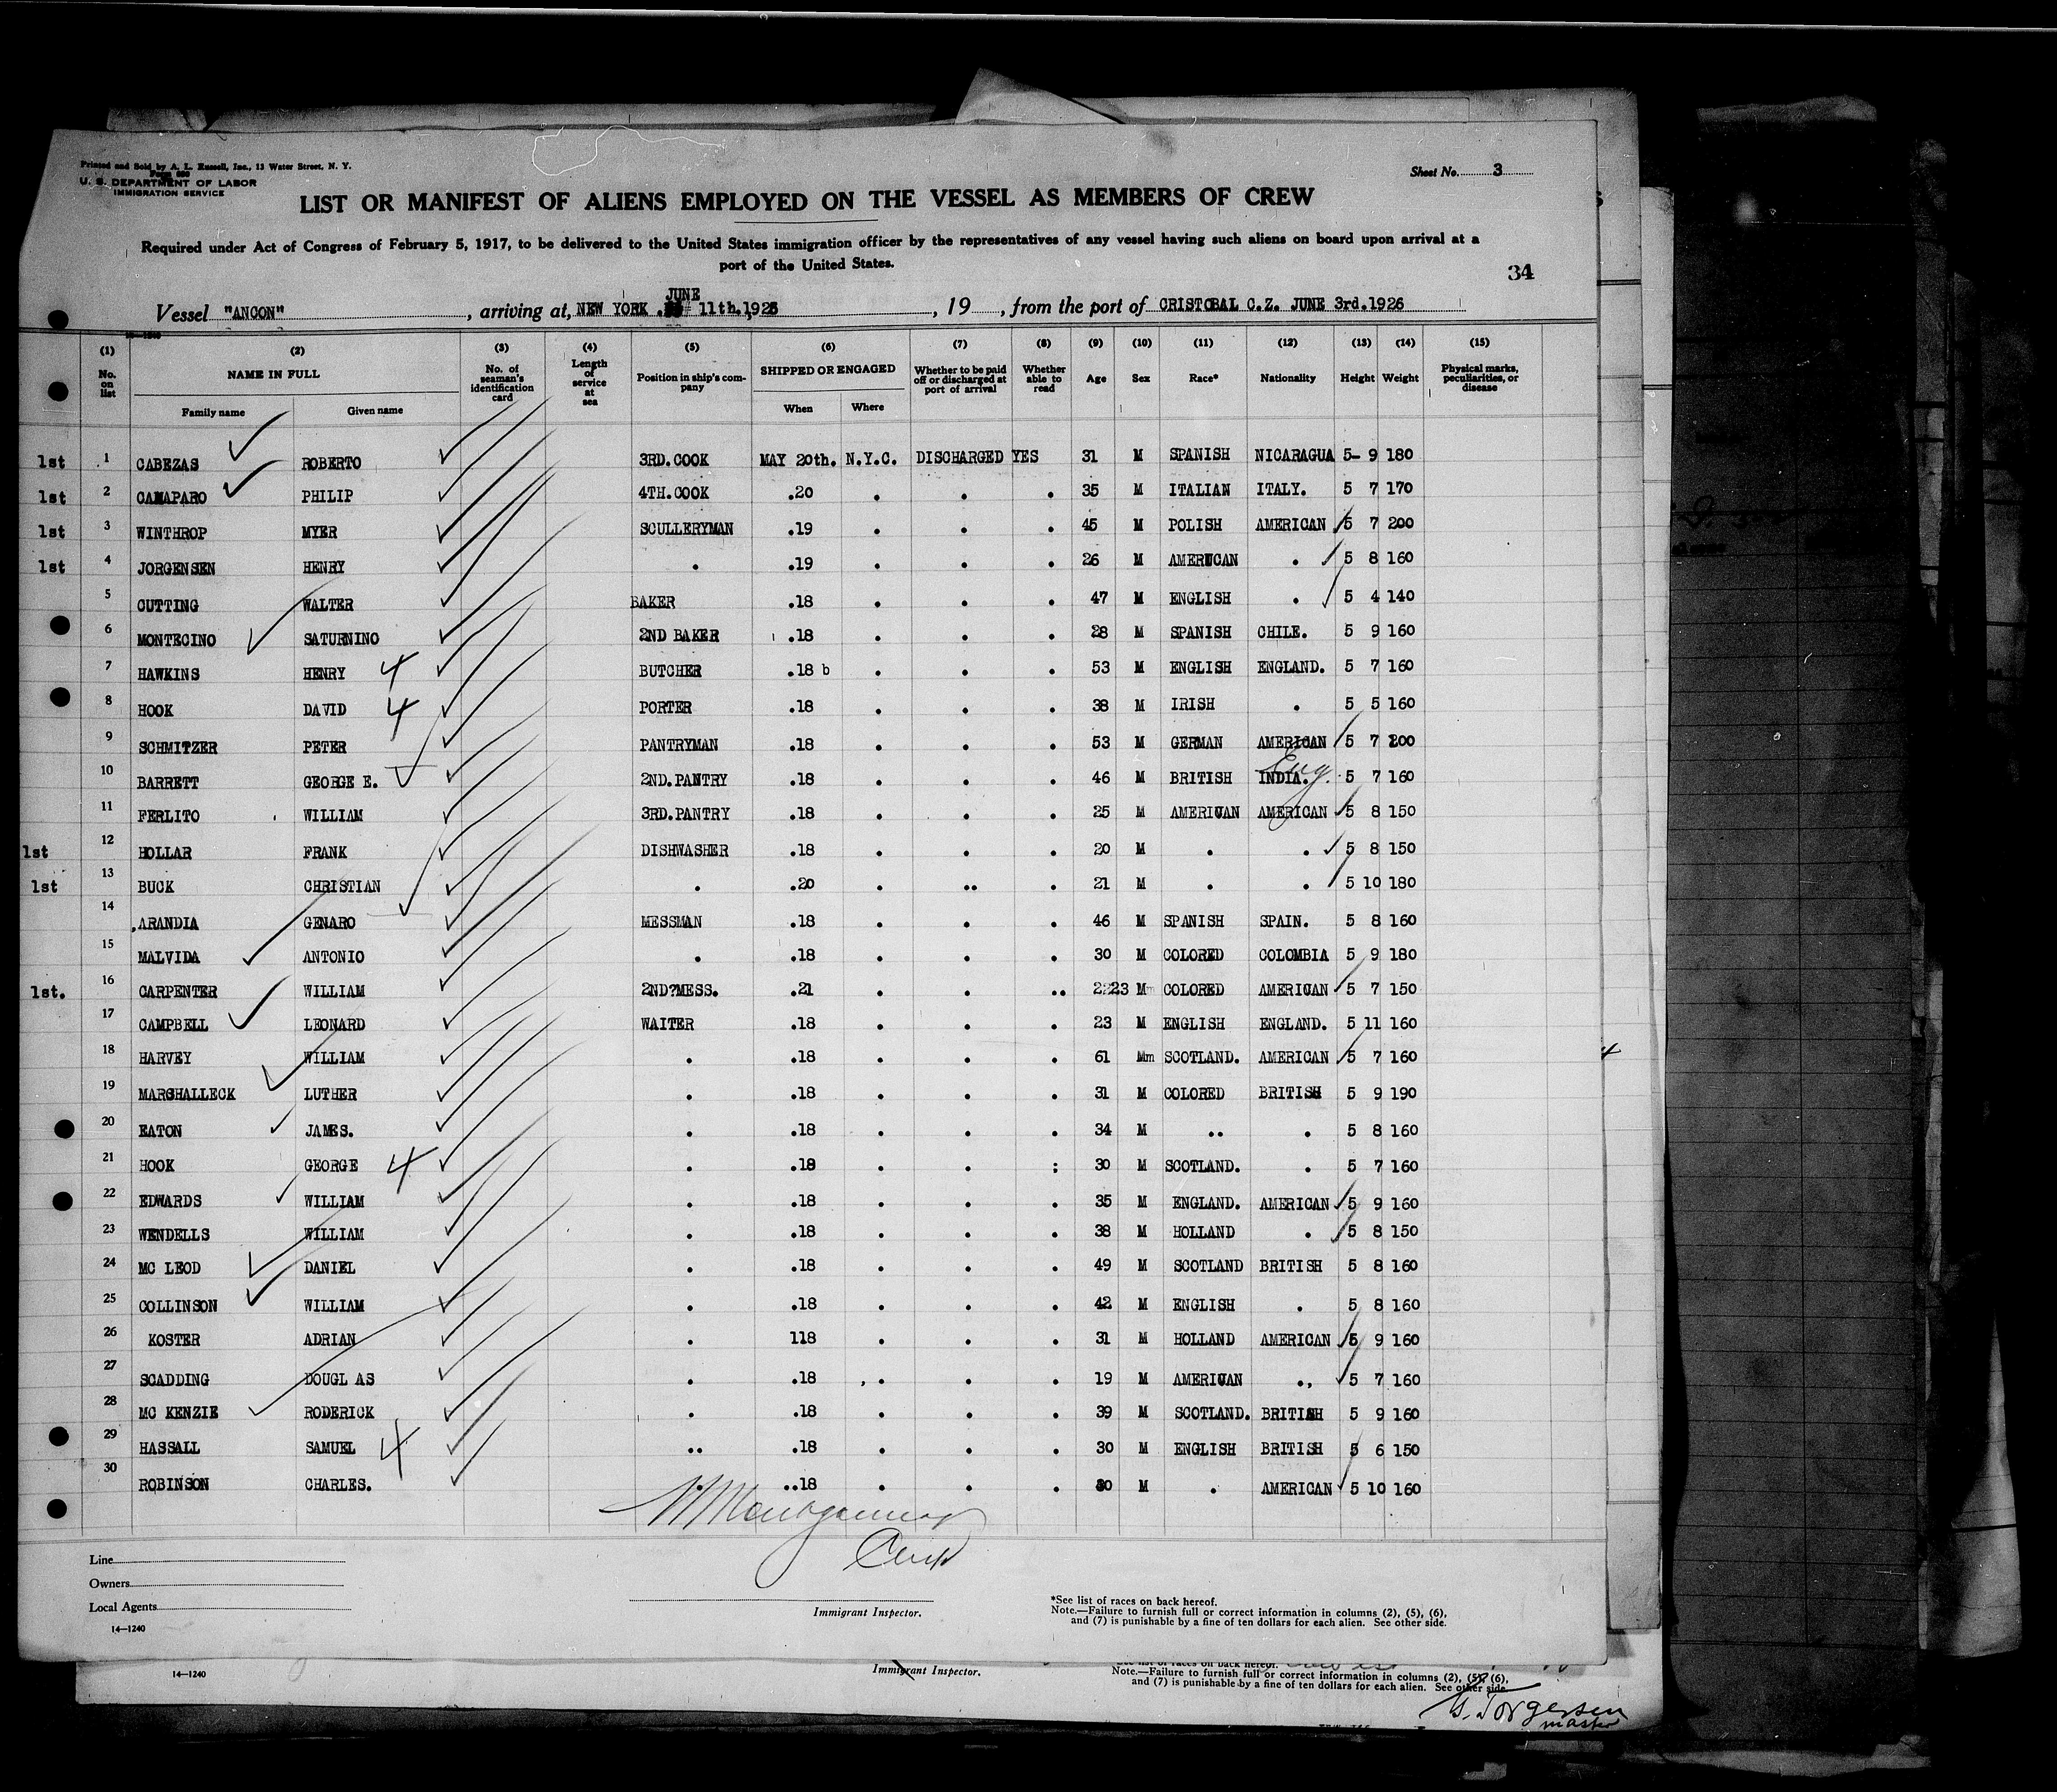 Printed and Sold by A. L. Russell, Inc., 13 Water Street, N. Y.
Form 680
U. S. DEPARTMENT OF LABOR
IMMIGRATION SERVICE
Sheet No. 3
LIST OR MANIFEST OF ALIENS EMPLOYED ON THE VESSEL AS MEMBERS OF CREW
Required under Act of Congress of February 5, 1917, to be delivered to the United States immigration officer by the representatives of any vessel having such aliens on board upon arrival at a
port of the United States.
34
Vessel "ANCON", arriving at, NEW YORK . JUNE 11th.1926, 19 , from the port of CRISTOBAL C.Z. JUNE 3rd.1926
(1) (2) (3) (4) (5) (6) (7) (8) (9) (10) (11) (12) (13) (14) (15)
No. on list NAME IN FULL No. of seaman's identification card Length of service at sea Position in ship's company SHIPPED OR ENGAGED Whether to be paid off or discharged at port of arrival Whether able to read Age Sex Race* Nationality Height Weight Physical marks, peculiarities, or disease
Family name Given name When Where
1st 1 CABEZAS ROBERTO 3RD.COOK MAY 20th. N.Y.C. DISCHARGED YES 31 M SPANISH NICARAGUA 5- 9 180
1st 2 CAMAPARO PHILIP 4TH.COOK .20 . . . 35 M ITALIAN ITALY. 5 7 170
1st 3 WINTHROP MYER SCULLERYMAN .19 . . . 45 M POLISH AMERICAN 5 7 200
1st 4 JORGENSEN HENRY . .19 . . . 26 M AMERICAN . 5 8 160
5 CUTTING WALTER BAKER .18 . . . 47 M ENGLISH . 5 4 140
6 MONTECINO SATURNINO 2ND BAKER .18 . . . 28 M SPANISH CHILE. 5 9 160
7 HAWKINS HENRY 4 BUTCHER .18 b . . . 53 M ENGLISH ENGLAND. 5 7 160
8 HOOK DAVID 4 PORTER .18 . . . 38 M IRISH . 5 5 160
9 SCHMITZER PETER PANTRYMAN .18 . . . 53 M GERMAN AMERICAN 5 7 200
10 BARRETT GEORGE E. 2ND.PANTRY .18 . . . 46 M BRITISH INDIA. Eng. 5 7 160
11 FERLITO WILLIAM 3RD.PANTRY .18 . . . 25 M AMERICAN AMERICAN 5 8 150
1st 12 HOLLAR FRANK DISHWASHER .18 . . . 20 M . . 5 8 150
1st 13 BUCK CHRISTIAN . .20 . .. . 21 M . . 5 10 180
14 ARANDIA GENARO MESSMAN .18 . . . 46 M SPANISH SPAIN. 5 8 160
15 MALVIDA ANTONIO . .18 . . . 30 M COLORED COLOMBIA 5 9 180
1st. 16 CARPENTER WILLIAM 2ND?MESS. .21 . . .. 2223 M COLORED AMERICAN 5 7 150
17 CAMPBELL LEONARD WAITER .18 . . . 23 M ENGLISH ENGLAND. 5 11 160
18 HARVEY WILLIAM . .18 . . . 61 Mm SCOTLAND. AMERICAN 5 7 160
19 MARSHALLECK LUTHER . .18 . . . 31 M COLORED BRITISH 5 9 190
20 EATON JAMES. . .18 . . . 34 M .. . 5 8 160
21 HOOK GEORGE 4 . .18 . . : 30 M SCOTLAND. . 5 7 160
22 EDWARDS WILLIAM . .18 . . . 35 M ENGLAND. AMERICAN 5 9 160
23 WENDELLS WILLIAM . .18 . . . 38 M HOLLAND . 5 8 150
24 MC LEOD DANIEL . .18 . . . 49 M SCOTLAND BRITISH 5 8 160
25 COLLINSON WILLIAM . .18 . . . 42 M ENGLISH . 5 8 160
26 KOSTER ADRIAN . 118 . . . 31 M HOLLAND AMERICAN 5 9 160
27 SCADDING DOUGLAS . .18 . . . 19 M AMERICAN ., 5 7 160
28 MC KENZIE RODERICK . .18 . . . 39 M SCOTLAND. BRITISH 5 9 160
29 HASSALL SAMUEL 4 .. .18 . . . 30 M ENGLISH BRITISH 5 6 150
30 ROBINSON CHARLES. ..18 . . . 30 M . AMERICAN 5 10 160
Montgomery
Line
Owners
Local Agents
14—1240
Immigrant Inspector.
*See list of races on back hereof.
Note.—Failure to furnish full or correct information in columns (2), (5), (6),
and (7) is punishable by a fine of ten dollars for each alien. See other side.
14—1240
Immigrant Inspector.
See list of races on back hereof.
Note.—Failure to furnish full or correct information in columns (2), (5), (6),
and (7) is punishable by a fine of ten dollars for each alien. See other side.
Torgersen
master